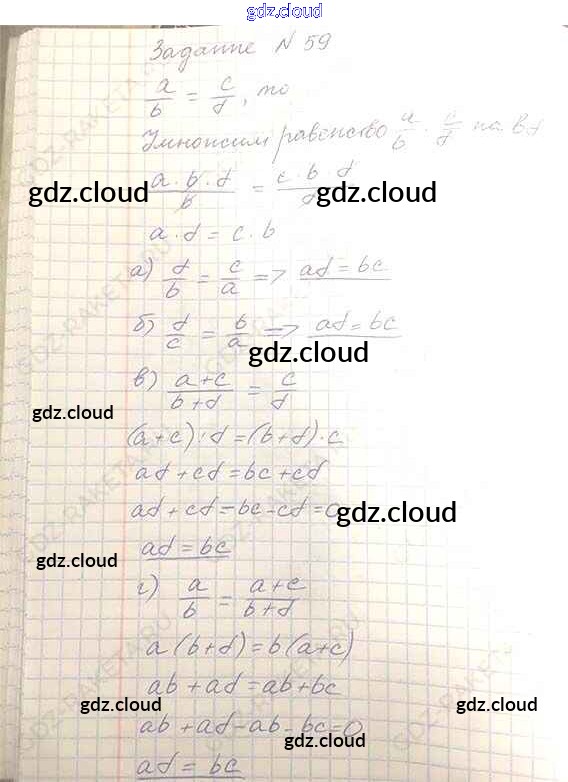 gdz.cloud
Задание N 59
a/b = c/d, то
Умножим равенство a/b · c/d на bd
a·b·d/b = c·b·d/d
gdz.cloud gdz.cloud
a·d = c·b
а) d/b = c/a => ad = bc
б) d/c = b/a => ad = bc
gdz.cloud
в) a+c/b+d = c/d
gdz.cloud
(a+c)·d = (b+d)·c
ad + cd = bc + cd
ad + cd - bc - cd = 0
gdz.cloud
ad = bc
gdz.cloud
г) a/b = a+c/b+d
gdz.cloud
a(b+d) = b(a+c)
ab + ad = ab + bc
gdz.cloud gdz.cloud
ab + ad - ab - bc = 0
ad = bc